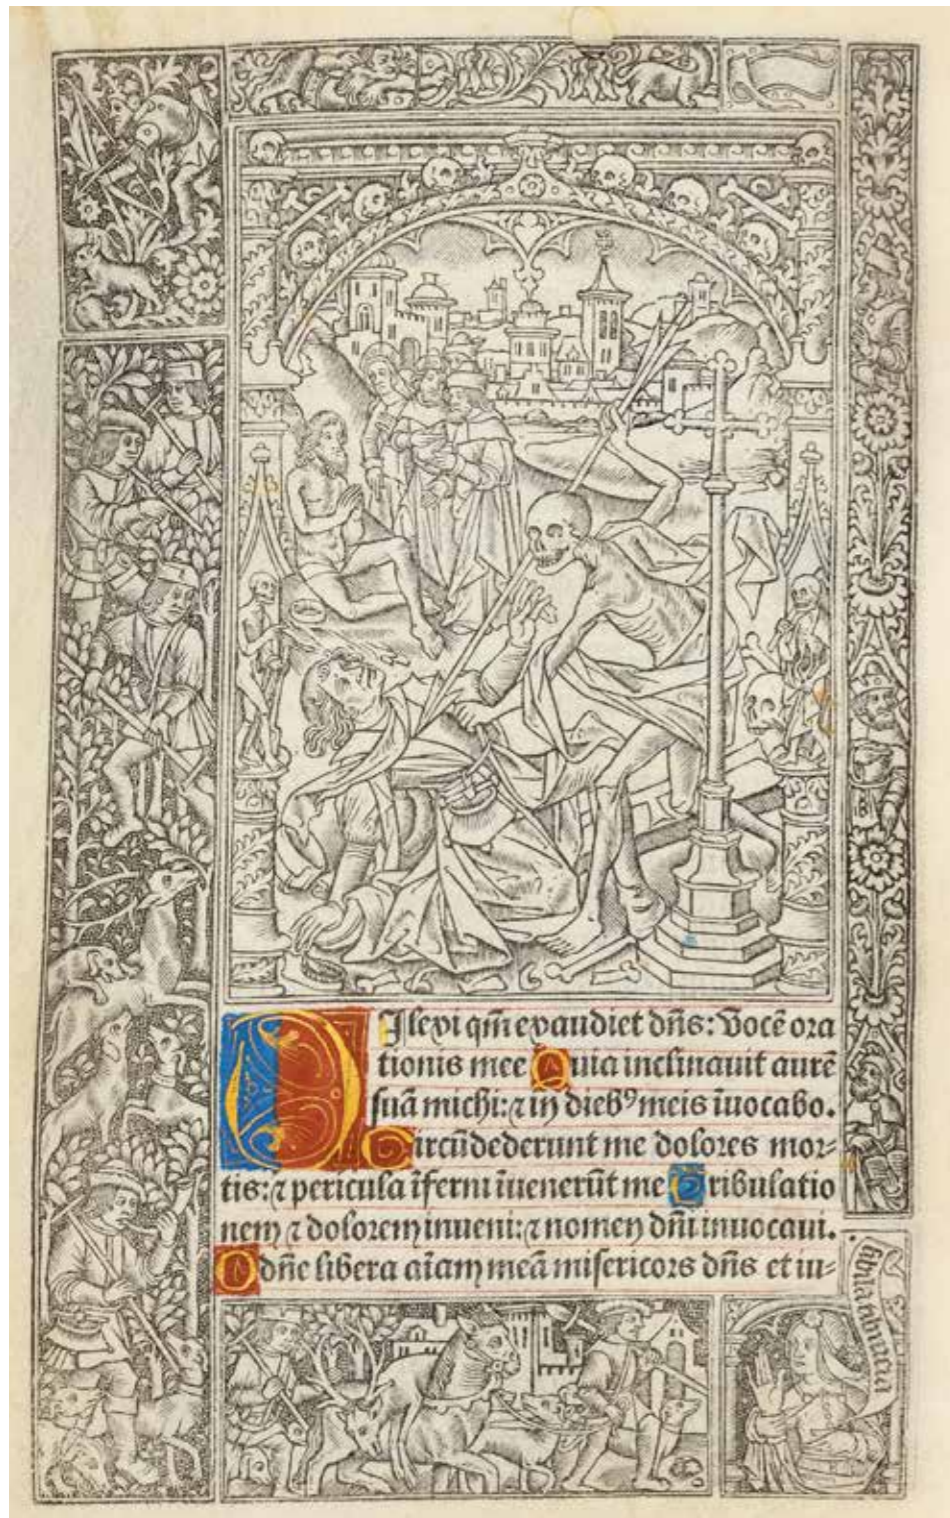 DIlexi qm̄ exaudiet dn̄s: Vocē ora
tionis mee Quia inclinauit aurē
suā michi: ⁊ in dieb⁹ meis īuocabo.
Circūdederunt me dolores mor⸗
tis: ⁊ pericula īferni īuenerūt me Tribulatio
nem ⁊ dolorem inueni: ⁊ nomen dn̄i inuocaui.
O dn̄e libera aīam meā misericors dn̄s et iu⸗